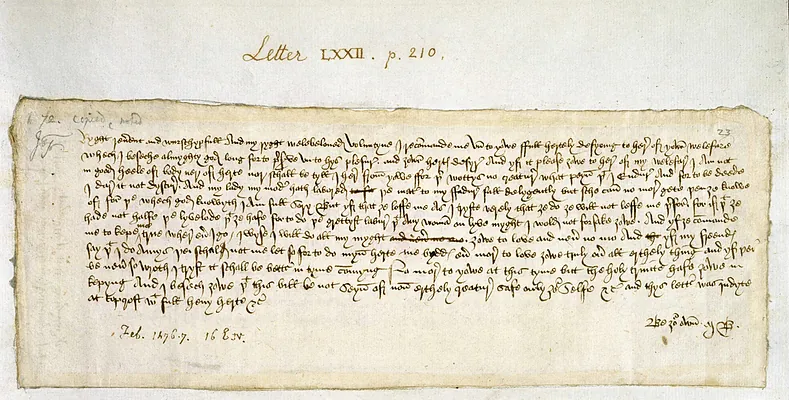 Letter LXXII. p. 210.
23
Ryght reverent and wurschypfull And my ryght welebeloved Voluntyne I recommande me vn to yowe full hertely desyring to here of yowr welefare
whech I beseche almyghty god long for to preserve vn to hys plesure and yowr hertys desyre And yf it please yowe to here of my welefare I am not
in good heele of body ner of herte nor schall be tyll I here from yowe for þer wottys no creature what peyn þt I endure And for to be deede
I dure it not dyscure And my lady my moder hath labored þe mater to my fadure full delygently but sche can no more gete þen ȝe knowe
of for þe whech god knowyth I am full sory But yf that ȝe loffe me As I tryste verely that ȝe do ȝe will not leffe me þerfor for if þt ȝe
hade not halfe þe lyvelode þt ȝe hafe for to do þe grettyst labure þt any woman on lyve myght I wold not forsake ȝowe And yf ȝe commande
me to kepe me true where euer I go I wyse I will do all my myght ȝowe to love and neuer no mo And yf my freendys
say þt I do amys þei schal not me let so for to do myn herte me bydds euer more to love ȝowe truly ouer all erthely thing and yf þei
be neuer so wroth I tryst it schall be bettur in tyme commyng No more to yowe at this tyme but the holy trinite hafe ȝowe in
kepyng And I besech ȝowe þt this bill be not seyn of non erthely creature safe only ȝour selfe &c and thys lettur was indyte
at topcroft wt full heuy herte &c
Be ȝour own M B.
Feb. 1476-7. 16 E. IV.